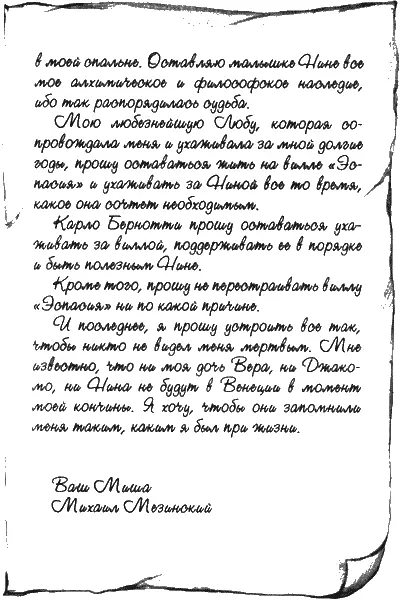 в моей спальне. Оставляю малышке Нине все
мое алхимическое и философское наследие,
ибо так распорядилась судьба.
Мою любезнейшую Любу, которая со-
провождала меня и ухаживала за мной долгие
годы, прошу оставаться жить на вилле «Эс-
пасия» и ухаживать за Ниной все то время,
какое она сочтет необходимым.
Карло Бернотти прошу оставаться уха-
живать за виллой, поддерживать ее в порядке
и быть полезным Нине.
Кроме того, прошу не перестраивать виллу
«Эспасия» ни по какой причине.
И последнее, я прошу устроить все так,
чтобы никто не видел меня мертвым. Мне
известно, что ни моя дочь Вера, ни Джако-
мо, ни Нина не будут в Венеции в момент
моей кончины. Я хочу, чтобы они запомнили
меня таким, каким я был при жизни.
Ваш Миша
Михаил Мезинский